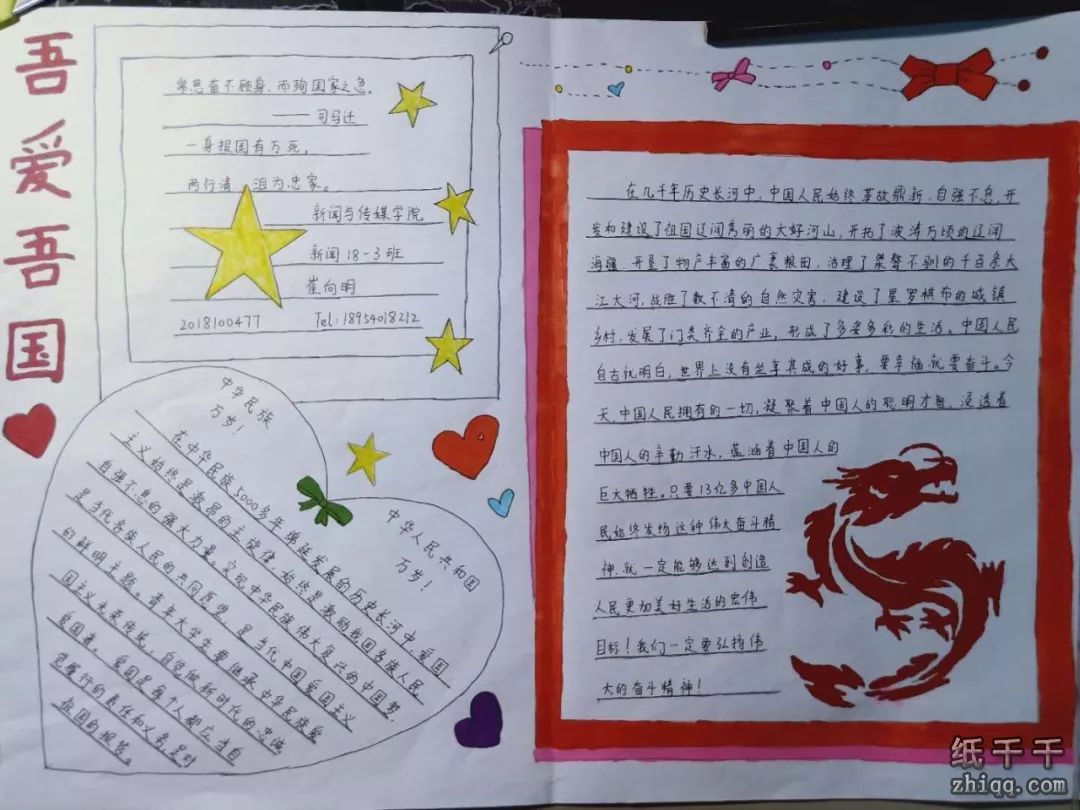 吾爱吾国
常思奋不顾身,而殉国家之急。
——司马迁
一身报国有万死,
两行清 泪为忠家。
新闻与传媒学院
新闻18-3班
崔向明
2018100477 Tel:18954018212
中华民族
万岁!
中华人民共和国
万岁!
在中华民族5000多年绵延发展的历史长河中,爱国
主义始终是激昂的主旋律,始终是激励我国各族人民
自强不息的强大力量。实现中华民族伟大复兴的中国梦,
是当代各族人民的共同愿望,是当代中国爱国主义
的鲜明主题。青年大学生要继承中华民族爱
国主义光荣传统,自觉做新时代的忠诚
爱国者。爱国是每个人都应当自
觉履行的责任和义务,是对
祖国的报答。
在几千年历史长河中,中国人民始终革故鼎新、自强不息,开
发和建设了祖国辽阔秀丽的大好河山,开拓了波涛万顷的辽阔
海疆,开垦了物产丰富的广袤粮田,治理了桀骜不驯的千百条大
江大河,战胜了数不清的自然灾害,建设了星罗棋布的城镇
乡村,发展了门类齐全的产业,形成了多姿多彩的生活。中国人民
自古就明白,世界上没有坐享其成的好事,要幸福就要奋斗。今
天,中国人民拥有的一切,凝聚着中国人的聪明才智,浸透着
中国人的辛勤汗水,蕴涵着中国人的
巨大牺牲。只要13亿多中国人
民始终发扬这种伟大奋斗精
神,就一定能够达到创造
人民更加美好生活的宏伟
目标!我们一定要弘扬伟
大的奋斗精神!
纸千千
zhiqq.com